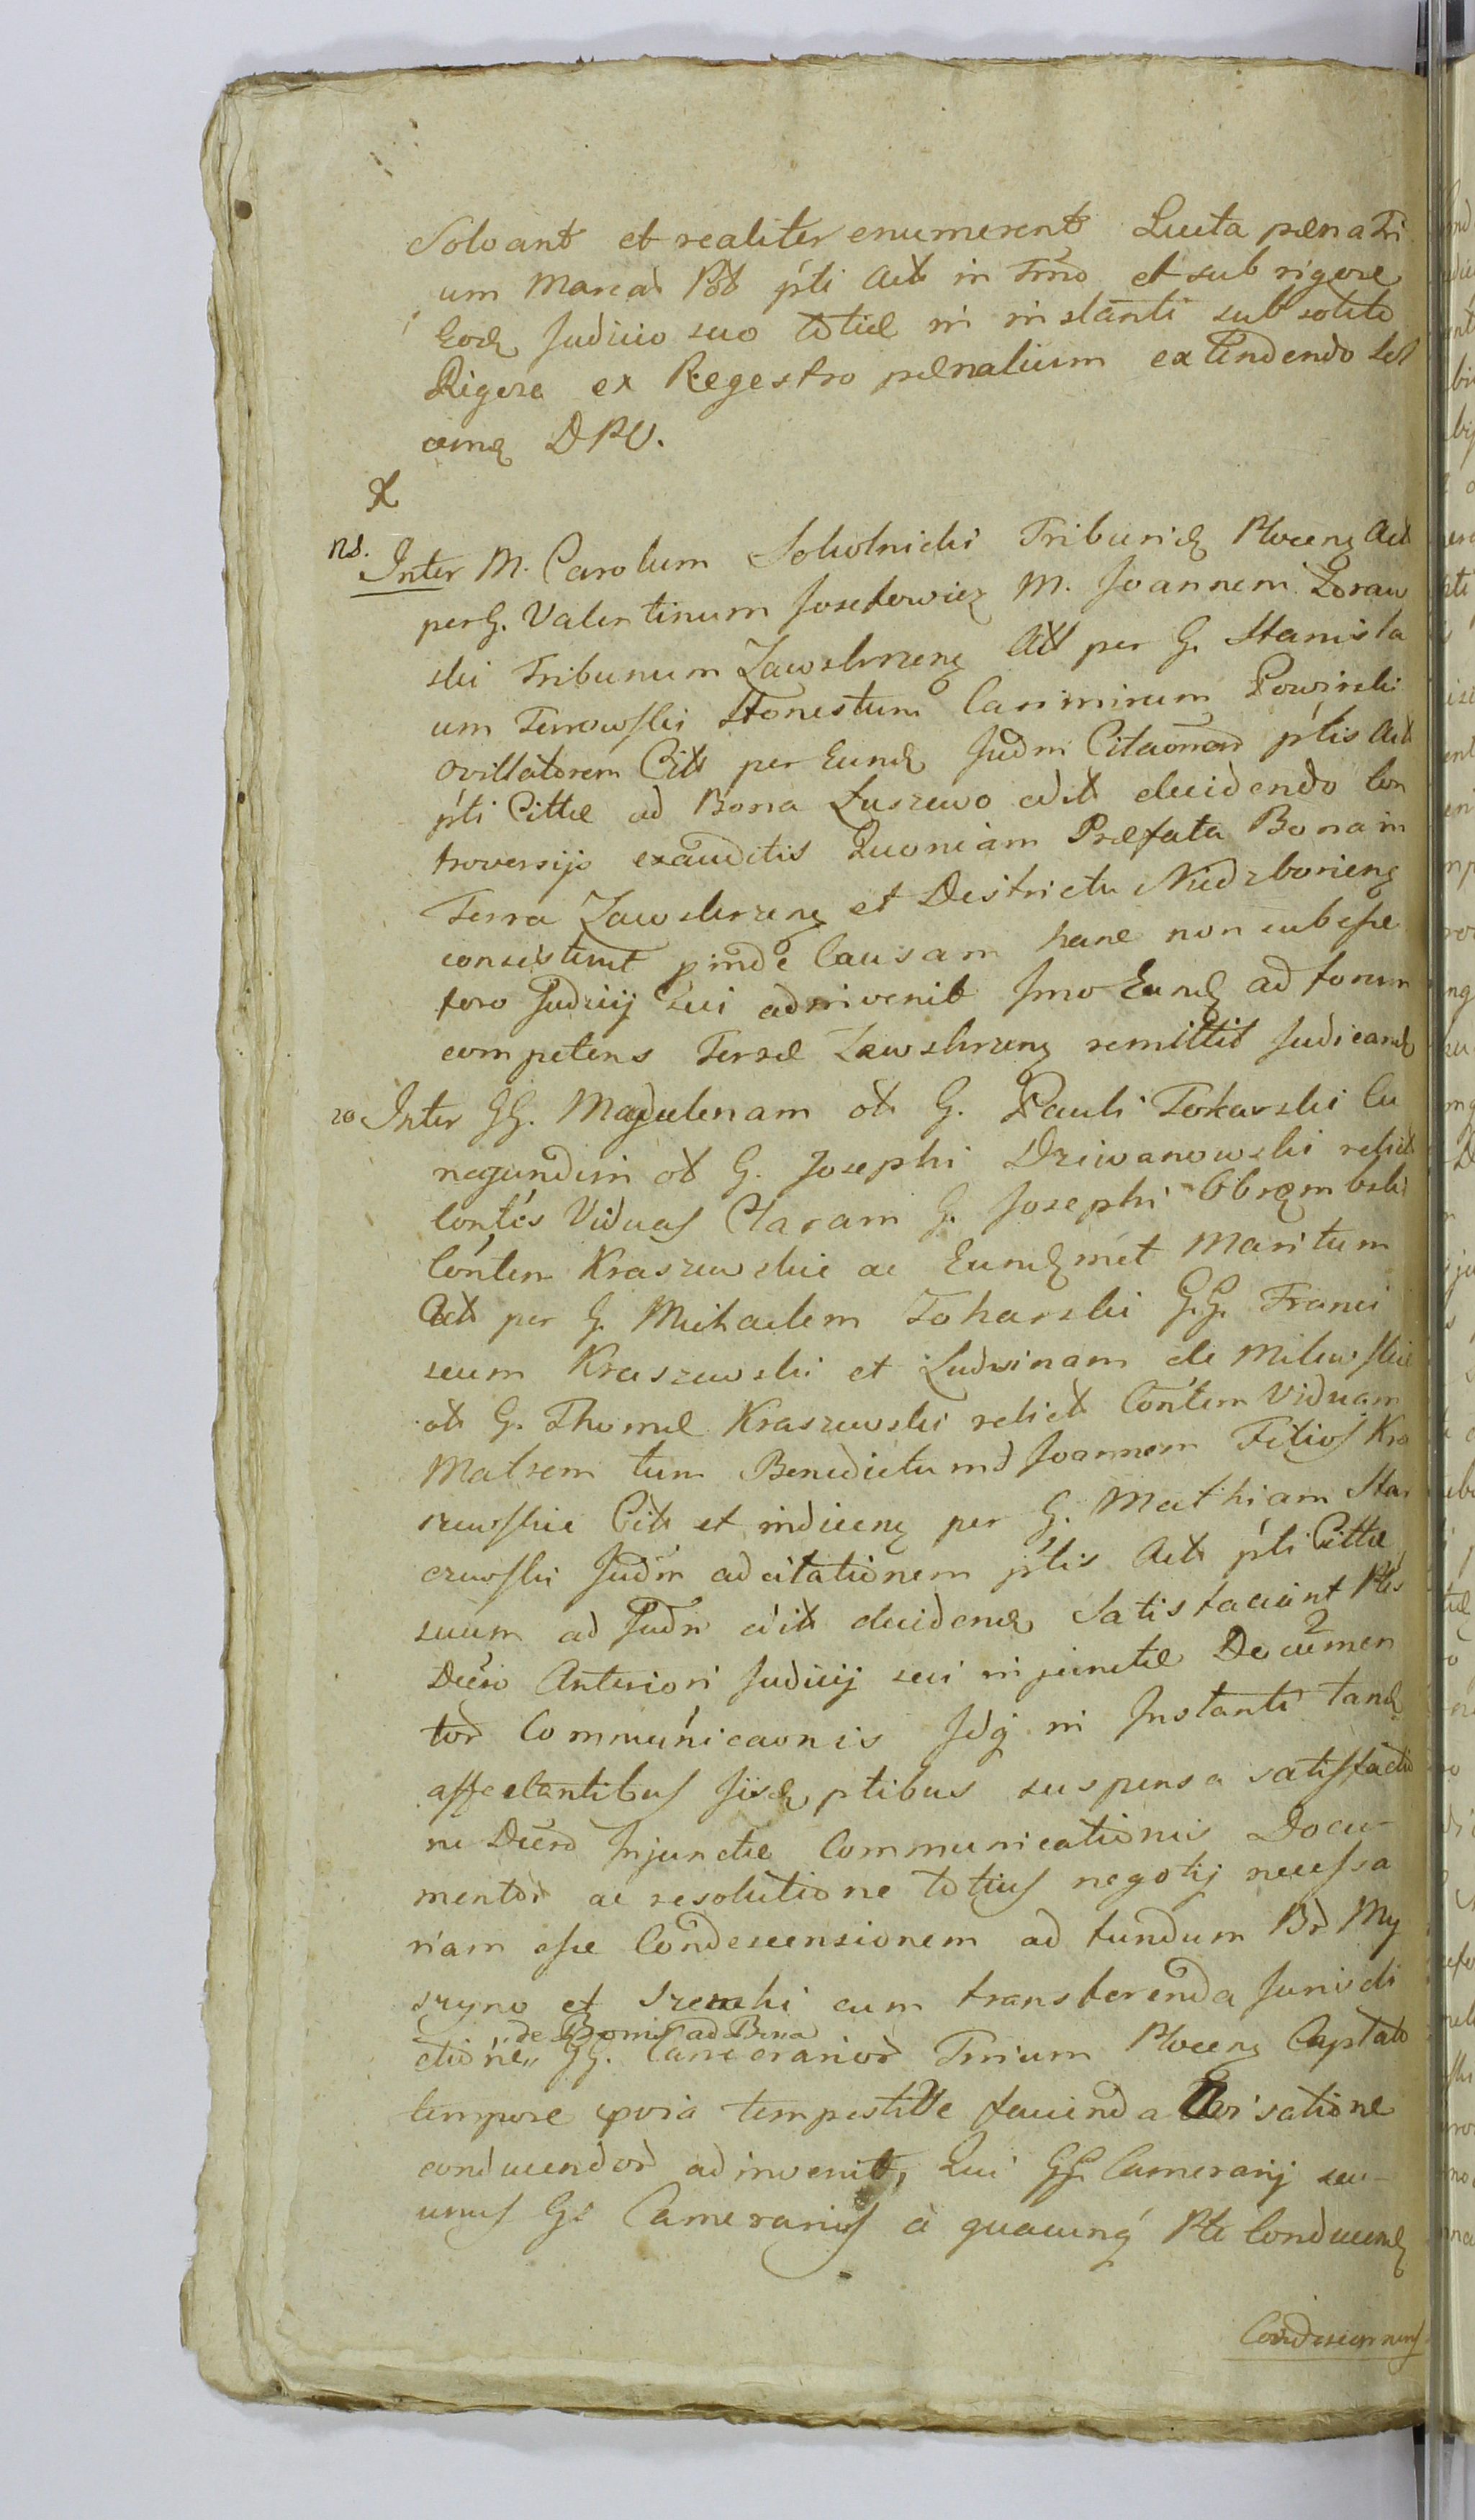 Solvant et realiter enumerent Lucta paena Tri
um Marcar Pol pti Act in Tmo et sub rigore
Eodq Judicio suo totiae in instanti sub solito
Rigore ex Regestro paenalium extendendo Sol
DPV.
X
ns. Inter M. Carolum Sokolnicki Tribunidq Plocenq Act
per G. Valentinum Josefowicz M. Joannem Zoraw
ski Tribunum Zawskrzenq Citt per G. Stanisla
um Ternowski Honestum Casimirum Powirski
ovillatorem Citt per Eundq Judm Citaonem ptis Act
pti Cittae ad Bona Luszewo edit decidendo Con
troversijs exauditis Quoniam Praefata Bona in
Terra Zawskrzenq et Districtu Niedzborienq
consistunt pinde Causam hanc non subesse
foro Judicij sui adinvenit Imo Eandq ad forum
competens Terrae Zawskrzenq remittit Judicandq
20 Inter GG. Magdalenam ol G. Pauli Tokarski Cu
negundim ol G. Josephi Dziwanowski relict
Contes Viduas Claram G. Josephi Obrembski
Conten Kraszewskie ac Eundqmet Maritum
Act per G. Michaelem Tokarski GG. Franci
scum Kraszewski et Ludvinam de Milewskie
ol G. Thomae Kraszewski relict Contem Viduam
Matrem tum Benedictum d Joannem Filios Kra
szewskie Citt et indicenq per G. Mathiam Star
czewski Judm ad citationem ptis Act pti Cittae
suum ad Judm edit decidendq Satisfaciant Ptes
Decro Anteriori Judicij sui injunctae Documen
tor Communicaonis Idq in Instanti tandq
affectantibus Iisdq ptibus suspensa satisfactio
ne Decro Injunctae Communicationis Docu-
mentor ac resolutione totius negotij necessa
riam esse Condescensionem ad fundum Br My
szyno et cum transferenda Jurisdi
de Bonis ad Bona
ctione,, GG. Camerarior Trrium Plocenq Captato
tempore pvia tempestive facienda Avisatione
conducendor adinvenit, Qui GG. Camerarij seu-
unus Gs Camerarius à quacunq Pte Conducendq
Condescen